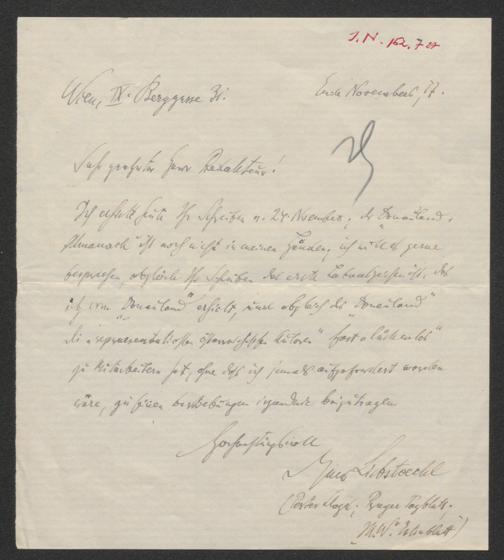 J.N. 162.727
Wien, IX. Berggasse 31.
Ende November, 17.
Sehr geehrter Herr Redakteur!
Ich erhielt heute Ihr Schreiben v. 24 November, der "Donauland-
Almanach" ist noch nicht in meinen Händen, ich will es gerne
besprechen, obgleich Ihr Schreiben das erste Lebenszeichen ist, das
ich vom "Donauland" erhielt, und obgleich die "Donauland"
die "repräsentativsten österreichischen Autoren" fast "lückenlos"
zu Mitarbeitern hat, ohne daß ich jemals aufgefordert worden
wäre, zu ihren Bestrebungen irgendwie beizutragen
Hochachtungsvoll
Hans Liebstoeckl
Prager Tagblatt.